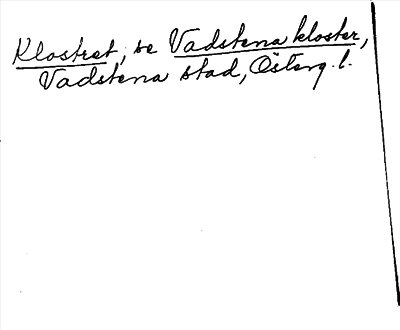 Klostret, se Vadstena kloster,
Vadstena stad, Österg. l.